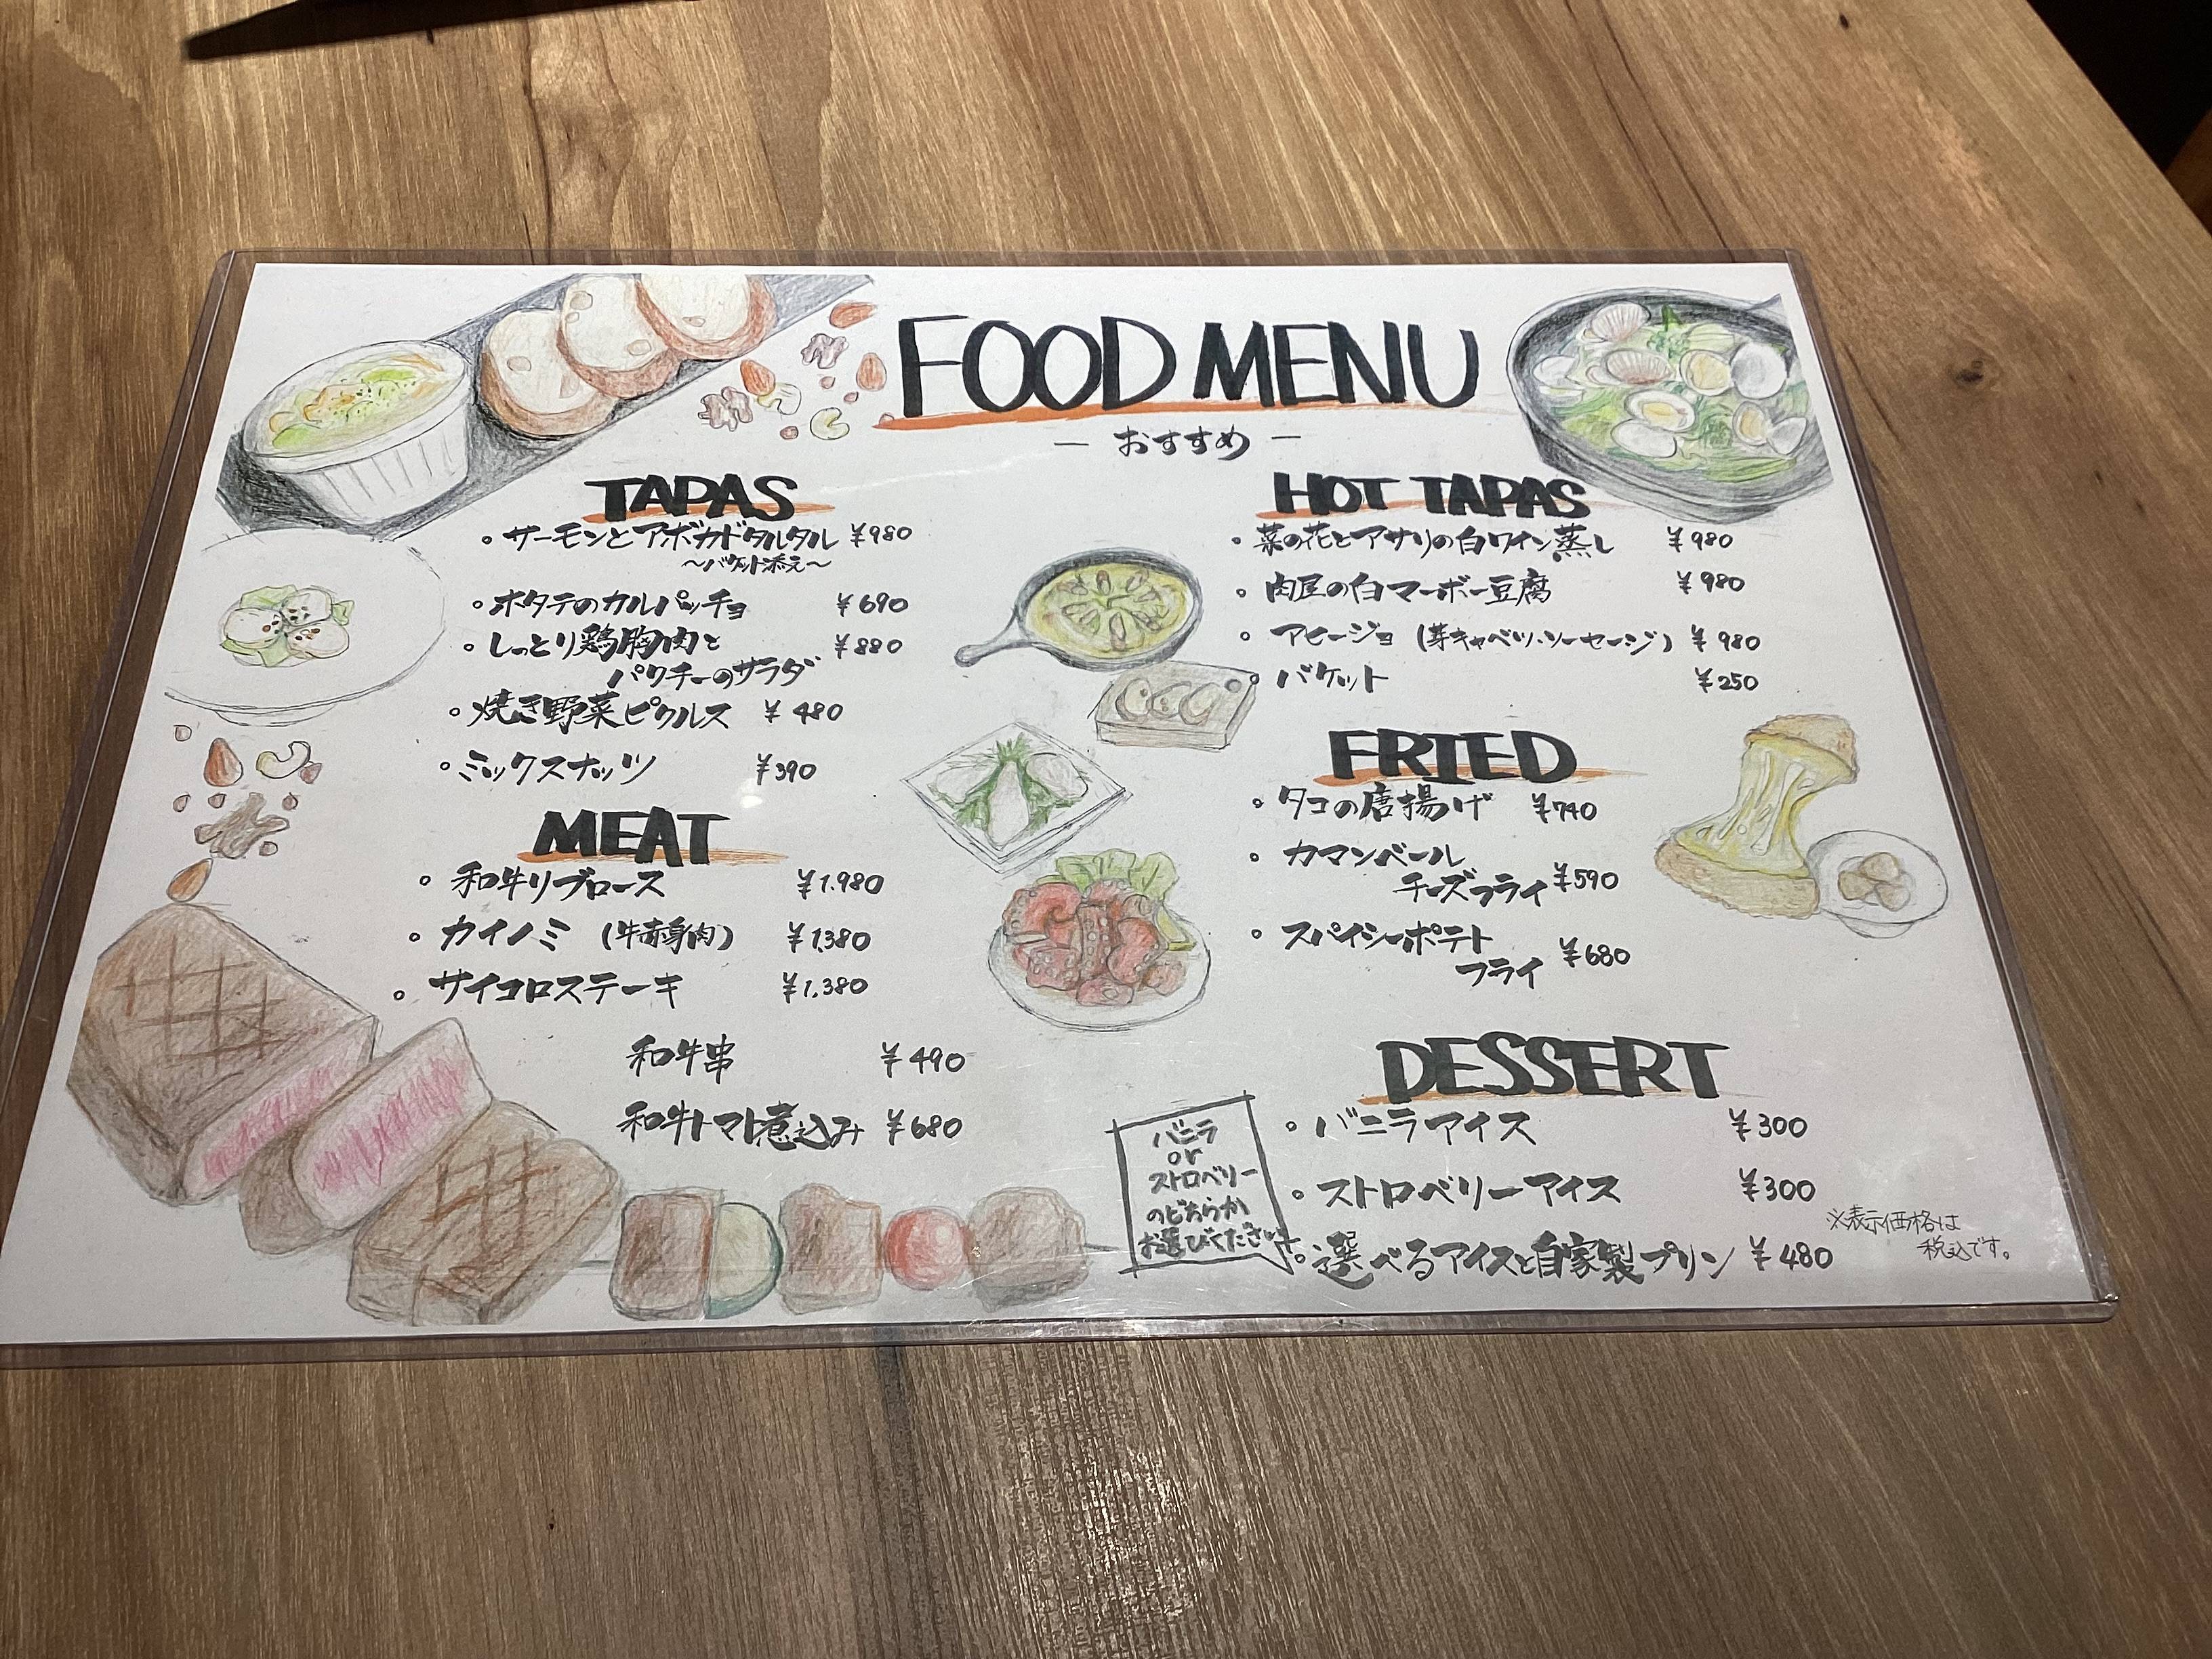 FOOD MENU
― おすすめ ―
TAPAS
・サーモンとアボカドタルタル ¥980
～バケット添え～
・ホタテのカルパッチョ ¥690
・しっとり鶏胸肉と ¥880
パクチーのサラダ
・焼き野菜ピクルス ¥480
・ミックスナッツ ¥390
MEAT
・和牛リブロース ¥1.980
・カイノミ (牛赤身肉) ¥1,380
・サイコロステーキ ¥1.380
和牛串 ¥490
和牛トマト煮込み ¥680
HOT TAPAS
・菜の花とアサリの白ワイン蒸し ¥980
・肉屋の白マーボー豆腐 ¥980
・アヒージョ (芽キャベツ・ソーセージ) ¥980
・バケット ¥250
FRIED
・タコの唐揚げ ¥740
・カマンベール
チーズフライ ¥590
・スパイシーポテト
フライ ¥680
DESSERT
・バニラアイス ¥300
・ストロベリーアイス ¥300
・選べるアイスと自家製プリン ¥480
バニラ
or
ストロベリー
のどちらか
お選びください
※表示価格は
税込です。